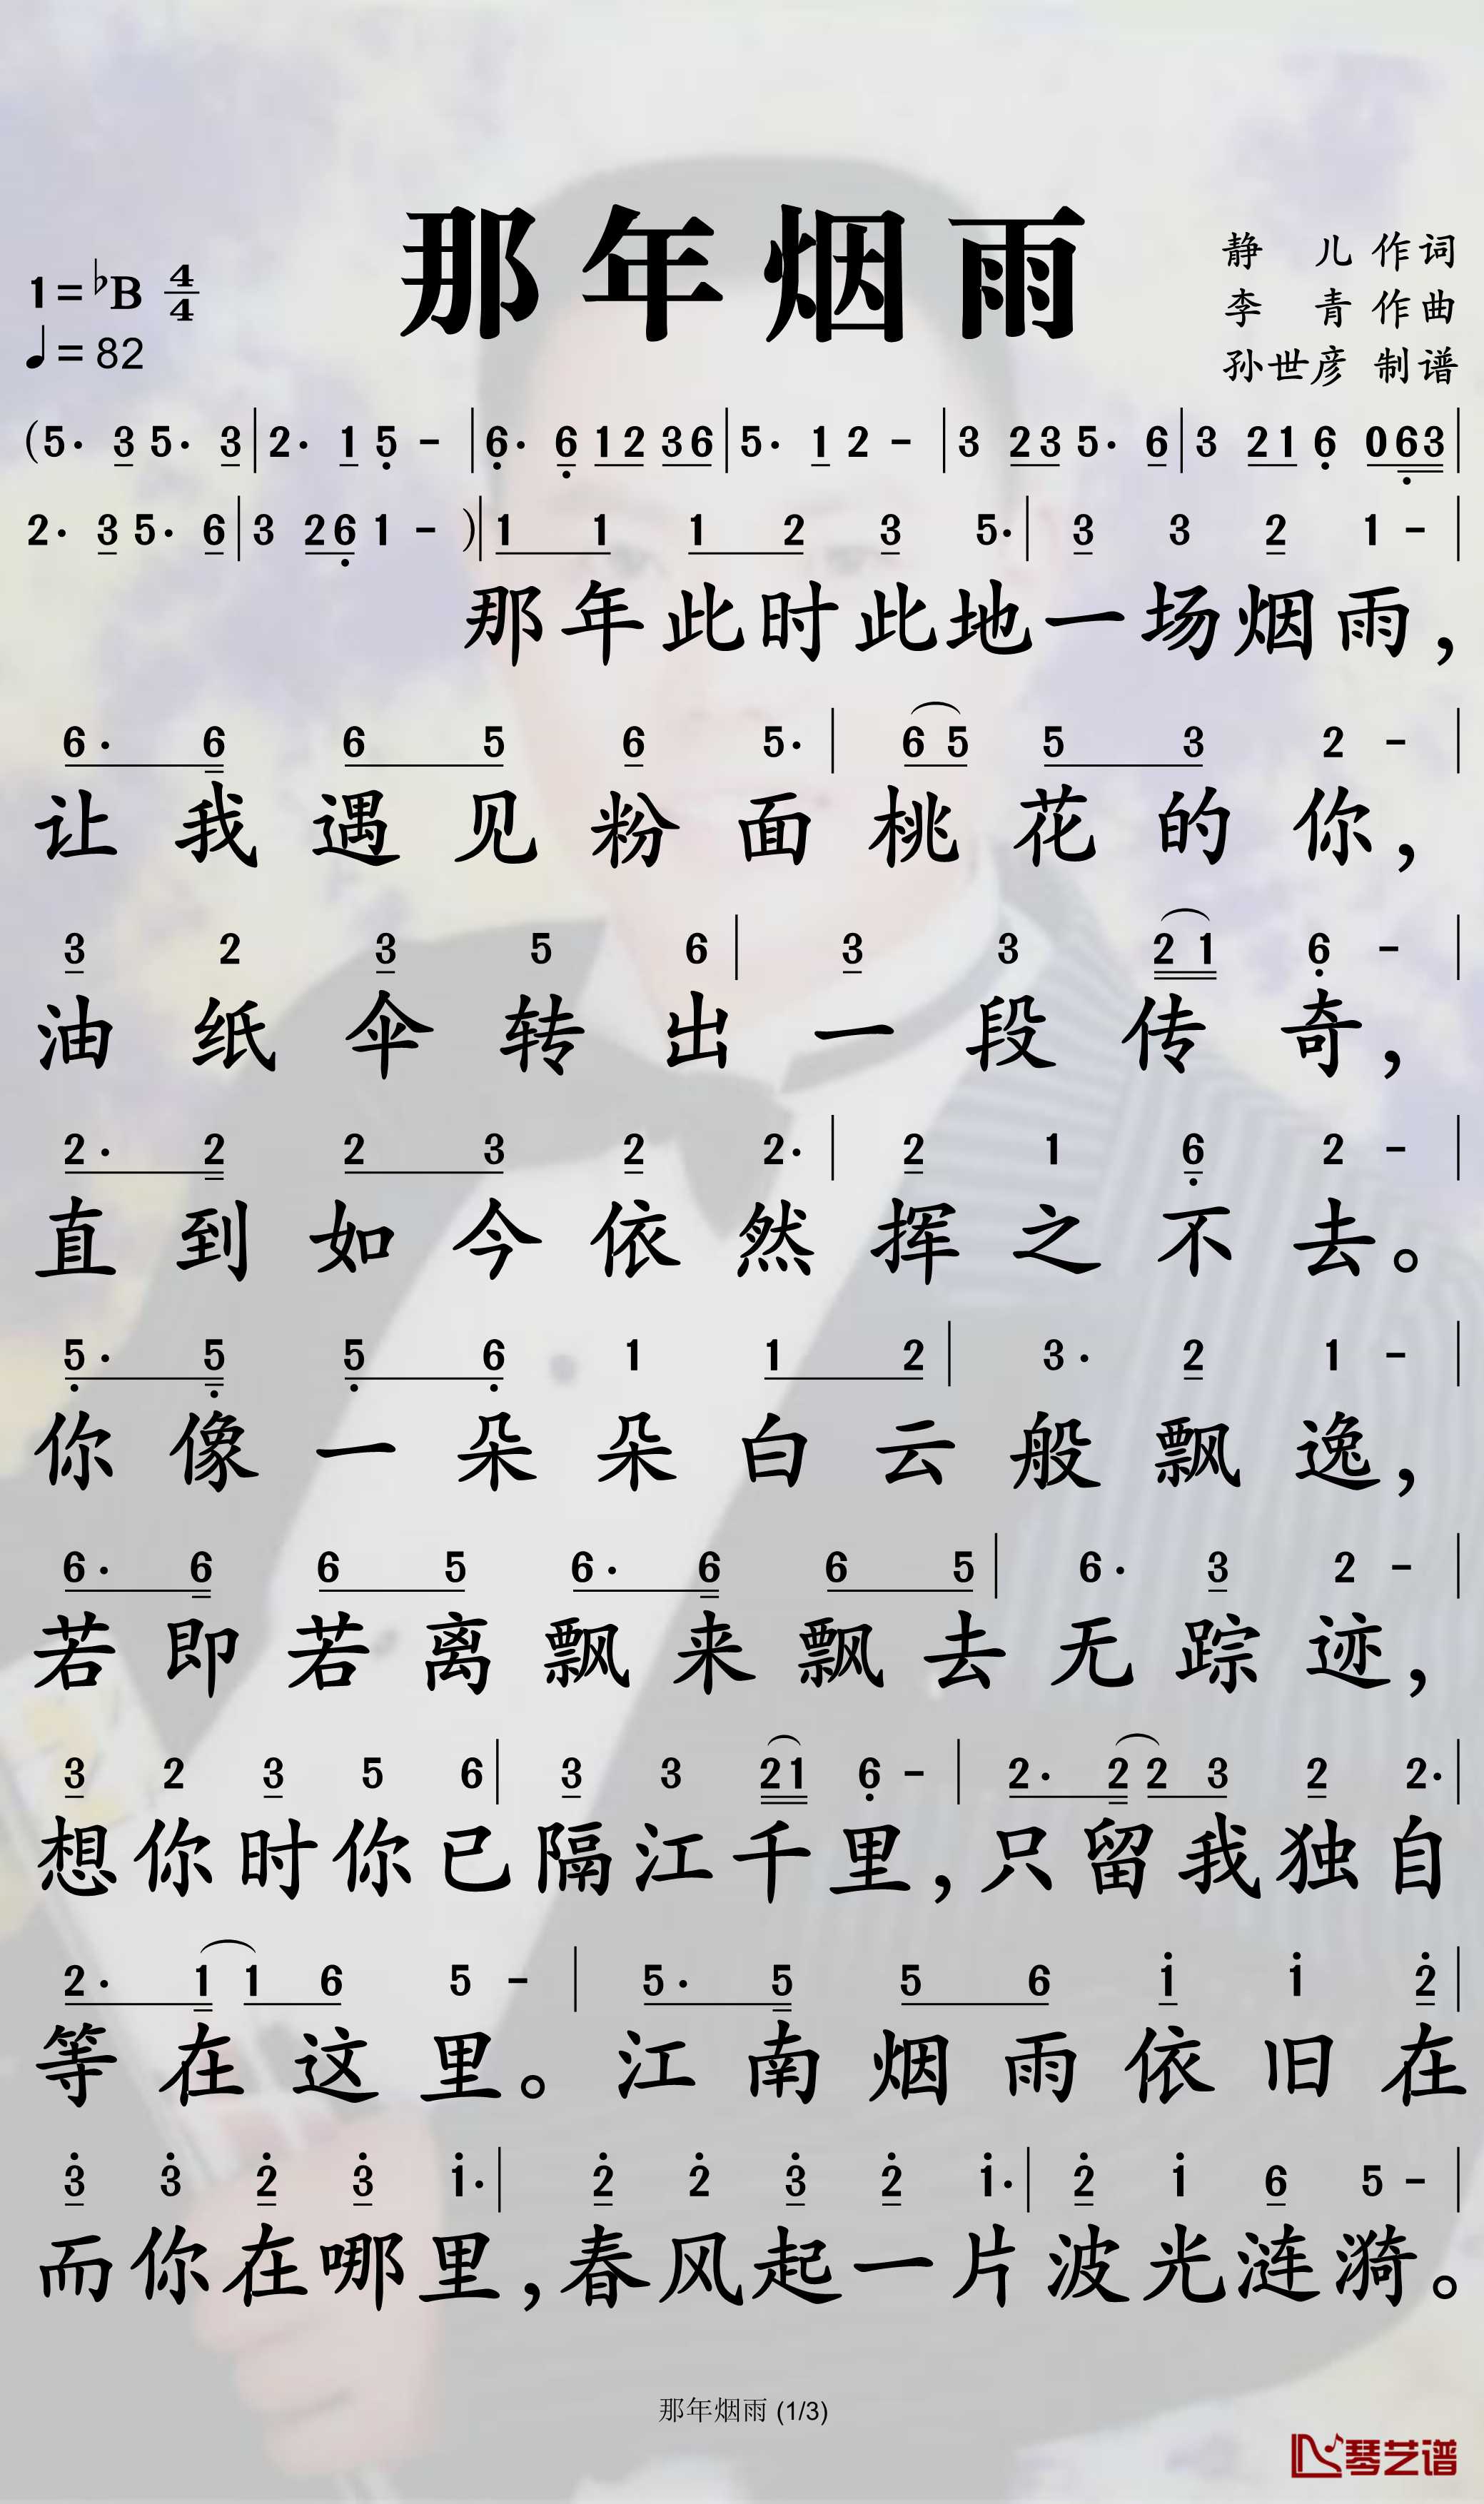 那年烟雨
1=♭B 4/4
♩=82
静 儿 作词
李 青 作曲
孙世彦 制谱
(5· 3 5· 3 | 2· 1 5 - | 6· 6 12 36 | 5· 1 2 - | 3 23 5· 6 | 3 21 6 063 |
2· 3 5· 6 | 3 26 1 - )| 1 1 1 2 3 5· | 3 3 2 1 - |
那年此时此地一场烟雨，
6· 6 6 5 6 5· | 6 5 5 3 2 - |
让我遇见粉面桃花的你，
3 2 3 5 6 | 3 3 2 1 6 - |
油纸伞转出一段传奇，
2· 2 2 3 2 2· | 2 1 6 2 - |
直到如今依然挥之不去。
5· 5 5 6 1 1 2 | 3· 2 1 - |
你像一朵朵白云般飘逸，
6· 6 6 5 6· 6 6 5 | 6· 3 2 - |
若即若离飘来飘去无踪迹，
3 2 3 5 6 | 3 3 21 6 - | 2· 2 2 3 2 2· |
想你时你已隔江千里，只留我独自
2· 1 1 6 5 - | 5· 5 5 6 1 1 2 |
等在这里。江南烟雨依旧在
3 3 2 3 1· | 2 2 3 2 1· | 2 1 6 5 - |
而你在哪里，春风起一片波光涟漪。
那年烟雨 (1/3)
琴艺谱